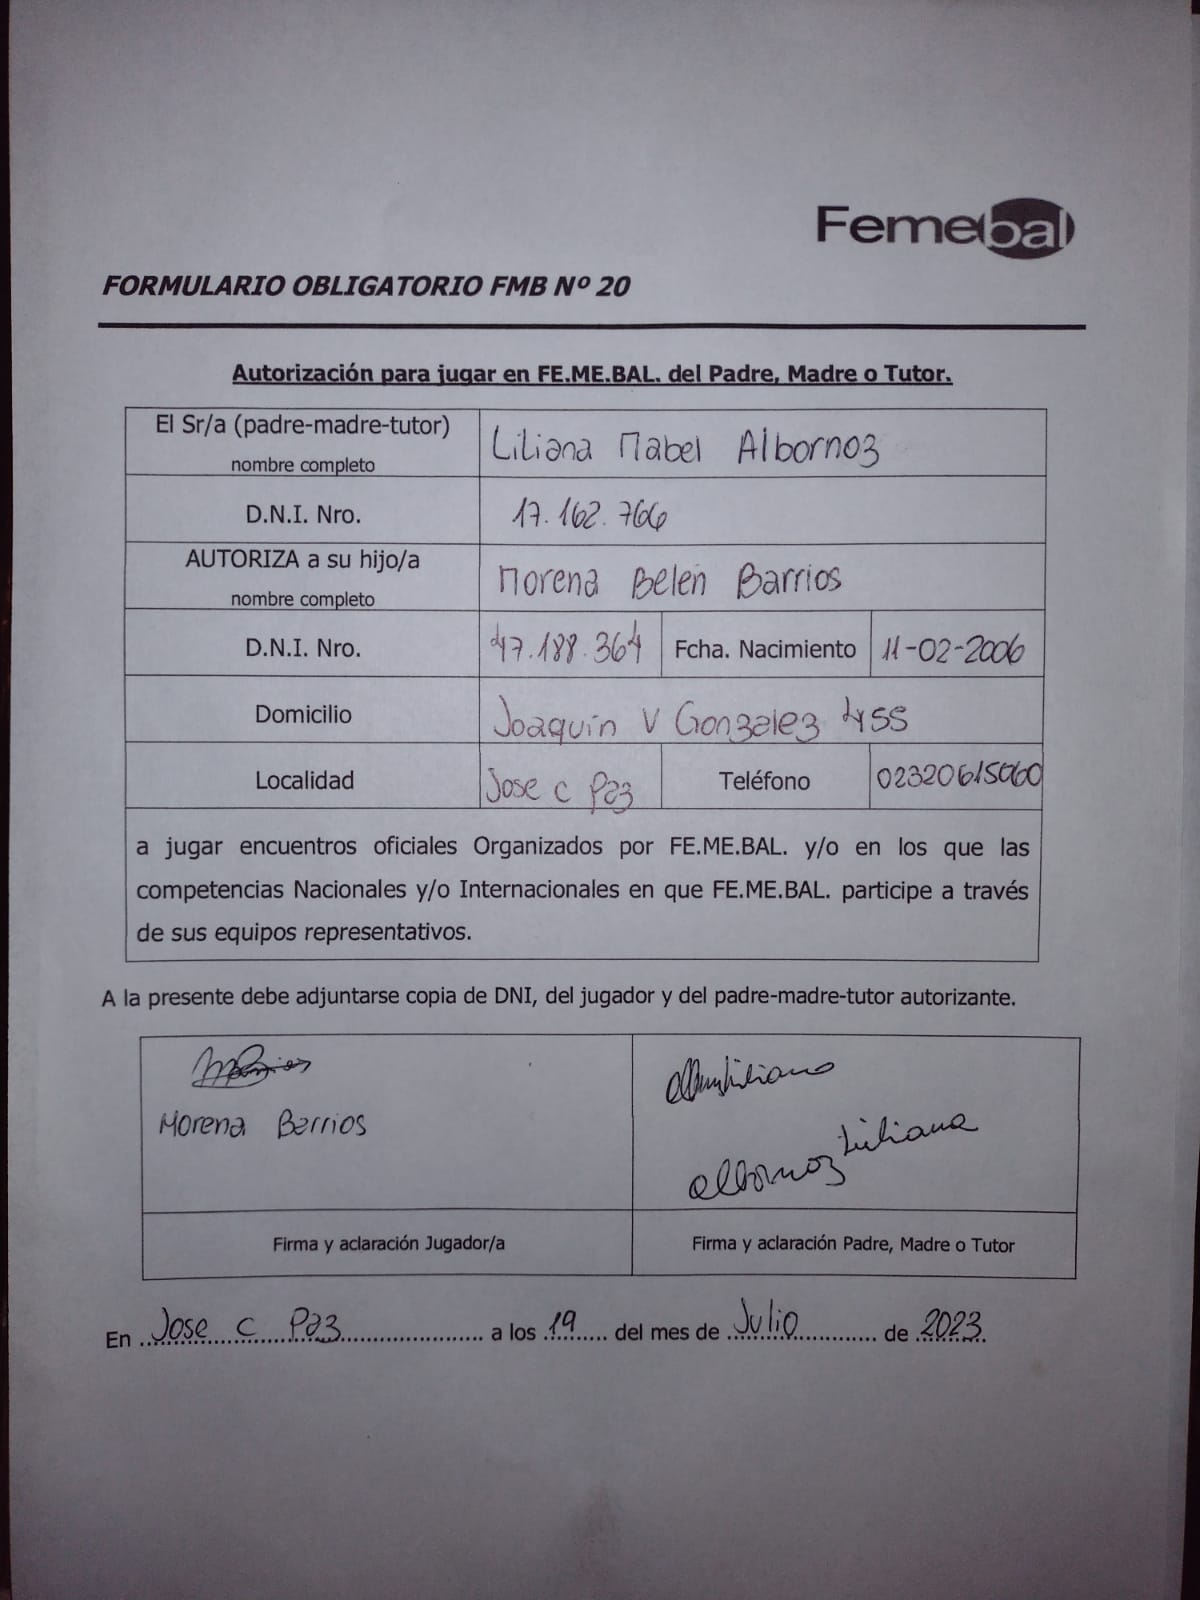 Femebal
FORMULARIO OBLIGATORIO FMB Nº 20
Autorización para jugar en FE.ME.BAL. del Padre, Madre o Tutor.
El Sr/a (padre-madre-tutor)
nombre completo
Liliana Mabel Albornoz
D.N.I. Nro.
17.162.766
AUTORIZA a su hijo/a
nombre completo
Morena Belén Barrios
D.N.I. Nro.
47.188.364
Fcha. Nacimiento
11-02-2006
Domicilio
Joaquín V Gonzalez 4455
Localidad
Jose C Paz
Teléfono
02320615060
a jugar encuentros oficiales Organizados por FE.ME.BAL. y/o en los que las
competencias Nacionales y/o Internacionales en que FE.ME.BAL. participe a través
de sus equipos representativos.
A la presente debe adjuntarse copia de DNI, del jugador y del padre-madre-tutor autorizante.
Morena Barrios
Albornoz Liliana
Firma y aclaración Jugador/a
Firma y aclaración Padre, Madre o Tutor
En Jose C Paz a los 19 del mes de Julio de 2023.